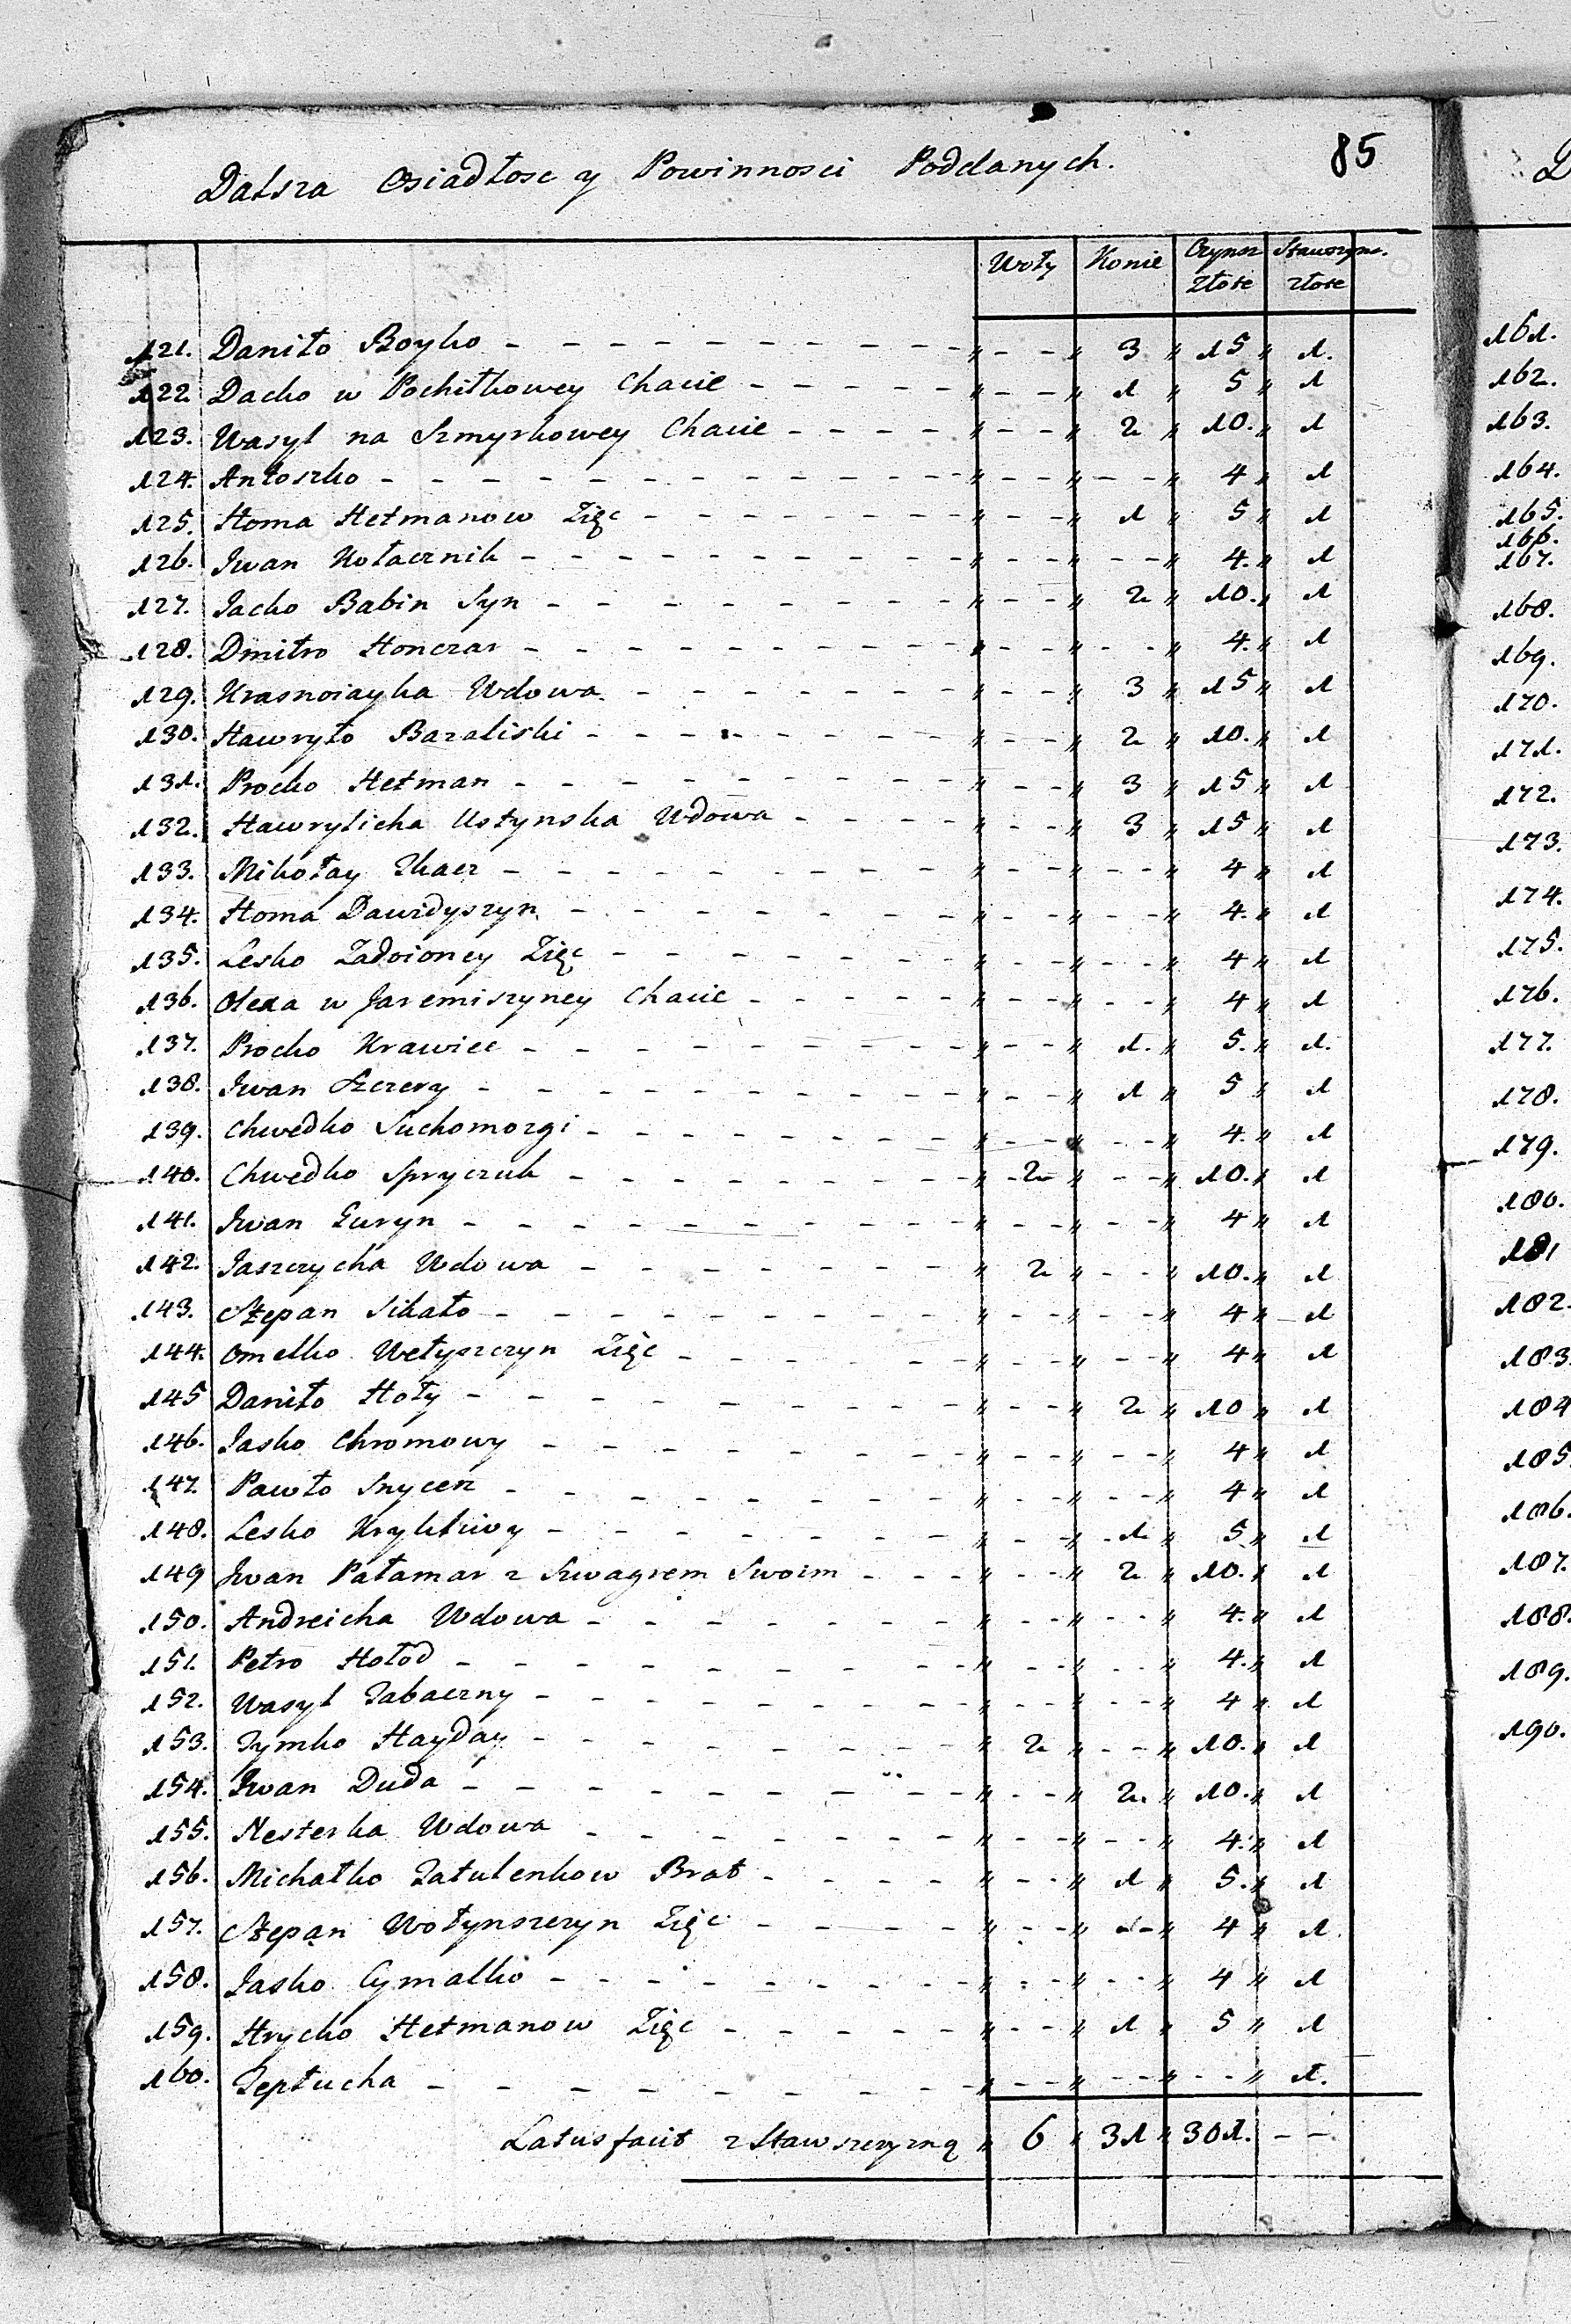 85
Dalsza Osiadłosc y Powinnosci Poddanych.
Woły Konie Czynsz Stawszyzn.
złote złote
121. Daniło Boyko - - - " - - " 3 " 15 " 1.
122 Dacko w Pochitkowey Chacie - - - " - - " 1 " 5 " 1
123. Wasyl na Szmyrkowey Chacie - - - " - - " 2 " 10. " 1
124. Antoszko - - - " - - " - - " 4 " 1
125. Homa Hetmanow Zięc - - - " - - " 1 " 5 " 1
126. Iwan Kołacznik - - - " - - " - - " 4. " 1
127. Jacko Babin Syn - - - " - - " 2 " 10. " 1
128. Dmitro Honczar - - - " - - " - - " 4. " 1
129. Krasnoiayka Wdowa - - - " - - " 3 " 15 " 1
130. Hawryło Bazaliski - - - " - - " 2 " 10. " 1
131. Procko Hetman - - - " - - " 3 " 15 " 1
132. Hawrylicha Ustynska Wdowa - - - " - - " 3 " 15 " 1
133. Mikołay Tkacz - - - " - - " - - " 4 " 1
134. Homa Dawidyszyn - - - " - - " - - " 4. " 1
135. Lesko Zadoioney Zięc - - - " - - " - - " 4 " 1
136. Olexa w Jaremiszyney Chacie - - - " - - " - - " 4 " 1
137. Procko Krawiec - - - " - - " 1. " 5. " 1.
138. Iwan Szczery - - - " - - " 1 " 5 " 1
139. Chwedko Suchomozgi - - - " - - " - - " 4. " 1
140. Chwedko Spryczuk - - - " 2 " - - " 10. " 1
141. Iwan Guryn - - - " - - " - - " 4 " 1
142. Jaszczycha Wdowa - - - " 2 " - - " 10. " 1
143. Stepan Sikało - - - " - - " - - " 4 " 1
144. Omelko Wełyszczyn Zięc - - - " - - " - - " 4 " 1
145 Daniło Hoły - - - " - - " 2 " 10 " 1
146. Jasko Chromowy - - - " - - " - - " 4 " 1
147. Pawło Snycerz - - - " - - " - - " 4 " 1
148. Lesko Kryklivvy - - - " - - " 1 " 5 " 1
149 Iwan Pałamar z Szwagrem Swoim - - - " - - " 2 " 10. " 1
150. Andreicha Wdowa - - - " - - " - - " 4. " 1
151. Petro Hołod - - - " - - " - - " 4. " 1
152. Wasyl Tabaczny - - - " - - " - - " 4 " 1
153. Tymko Hayday - - - " 2 " - - " 10. " 1
154. Iwan Duda - - - " - - " 2. " 10. " 1
155. Nesterka Wdowa - - - " - - " - - " 4. " 1
156. Michałko Zatulenkow Brat - - - " - - " 1 " 5. " 1
157. Stepan Wołynszczyn Zięc - - - " - - " - - " 4 " 1.
158. Jasko Cymalko - - - " - - " - - " 4 " 1
159. Hrycko Hetmanow Zięc - - - " - - " 1 " 5 " 1
160. Teptucha - - - " - - " - - " - - " 1.
Latus facit z Stawszczyzną " 6 " 31 " 301. - -
161.
162.
163.
164.
165.
166.
167.
168.
169.
170.
171.
172.
173.
174.
175.
176.
177.
178.
179.
180.
181
182.
183.
184
185.
186.
187.
188.
189.
190.